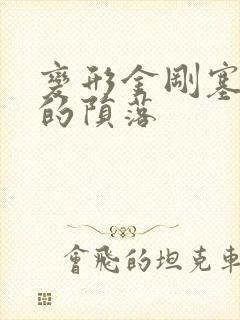 變形金剛塞
的隕落
會飛的坦克車